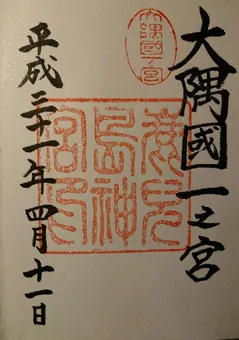 大隅國一之宮
鹿兒
島神
宮印
平成三十一年四月十一日